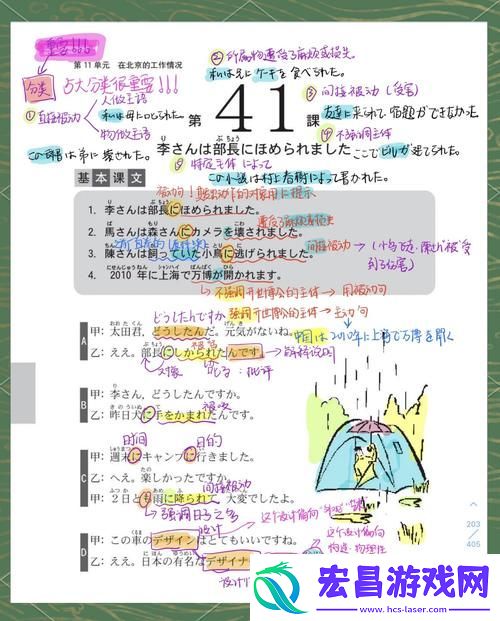 重要!!!
第 11 单元 在北京的工作情况
分类
5大分类很重要!!!
① 直接被动
人做主语
私は母に叱られた。
物做主语
この部屋は
② 所属物遭受了麻烦或损失
私は兄に ケーキを 食べられた。
③ 间接被动 (受害)
友達に来られて 宿題ができなかった
④ 不强调主体
ここで ビルが 建てられた。
⑤ 特定主体 によって
この小説は村上春樹によって書かれた。
第 41 課
李さんは部長にほめられました
基本课文
1. 李さんは部長にほめられました。
2. 馬さんは森さんにカメラを壊されました。
遭受了麻烦或损失
3. 陳さんは飼っていた小鳥に逃げられました。
间接被动
4. 2010 年に上海で万博が開かれます。
不强调开世博会的主体→用被动句
强调开世博会的主体→主动句
中国は2010年に上海で万博を開く
どうしたんですか
A
甲: 太田君, どうしたんだ。元気がないね。
乙: ええ。部長にしかられたんです。
解释说明
对象
しかる:批评
B
甲: 李さん, どうしたんですか。
乙: 昨日犬に手をかまれたんです。
被咬
时间
目的
C
甲: 週末にキャンプに行きました。
乙: へえ。楽しかったですか。
甲: 2日とも雨に降られて 大変でしたよ。
间接被动
强调日子之多
设计
D
甲: この車のデザインはとてもいいですね。
乙: ええ。日本の有名なデザイナ
这个设计偏向
构造、物理性
203
405
宏昌游戏网
www.hcs-laser.com